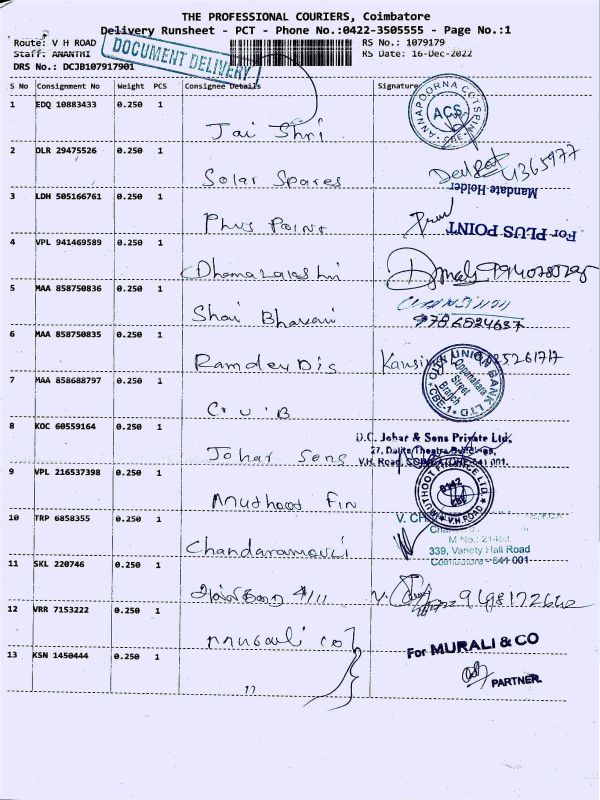 THE PROFESSIONAL COURIERS, Coimbatore
Delivery Runsheet - PCT - Phone No.:0422-3505555 - Page No.:1
Route: V H ROAD
RS No.: 1079179
Staff: ANANTHI
RS Date: 16-Dec-2022
DOCUMENT DELIVERY
DRS No.: DCJB107917901
S No Consignment No Weight PCS Consignee Details Signature
1 EDQ 10883433 0.250 1
Jai Shri
ANNAPOORNA COTSPIN ACS CBE
2 DLR 29475526 0.250 1
Solar Spares
Mandate Holder
3 LDH 505166761 0.250 1
Plus Point
For PLUS POINT
4 VPL 941469589 0.250 1
Dhanalakshmi
5 MAA 858750836 0.250 1
Shai Bhavani
9786824637
6 MAA 858750835 0.250 1
Ramdev Dis
7 MAA 858688797 0.250 1
C U B
CITY UNION BANK LTD
Oppanakara Street Branch
CBE-1
8 KOC 60559164 0.250 1
Johar Sons
D.C. Johar & Sons Private Ltd.
27, Dalite Theatre Buildings,
V.H. Road, COIMBATORE-641 001.
9 VPL 216537398 0.250 1
Muthoot Fin
MUTHOOT FINANCE LTD. V.H.ROAD
10 TRP 6858355 0.250 1
Chandaramouli
M No.: 21453
339, Variety Hall Road
Coimbatore - 641 001
11 SKL 220746 0.250 1
12 VRR 7153222 0.250 1
Murali co
For MURALI & CO
PARTNER.
13 KSN 1450444 0.250 1
11